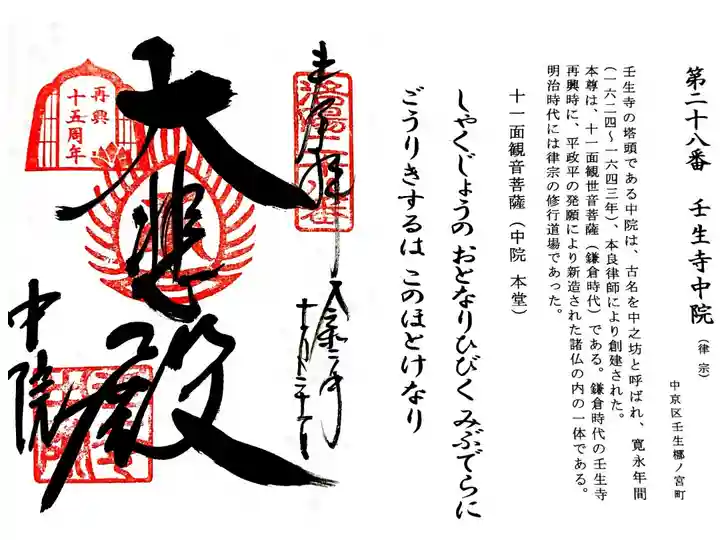 第二十八番 壬生寺中院（律宗）
中京区壬生梛ノ宮町
壬生寺の塔頭である中院は、古名を中之坊と呼ばれ、寛永年間
（一六二四～一六四三年）、本良律師により創建された。
本尊は、十一面観世音菩薩（鎌倉時代）である。鎌倉時代の壬生寺
再興時に、平政平の発願により新造された諸仏の内の一体である。
明治時代には律宗の修行道場であった。
十一面観音菩薩（中院 本堂）
しゃくじょうの おとなりひびく みぶでらに
ごうりきするは このほとけなり
大悲殿
中院
再興
十五周年